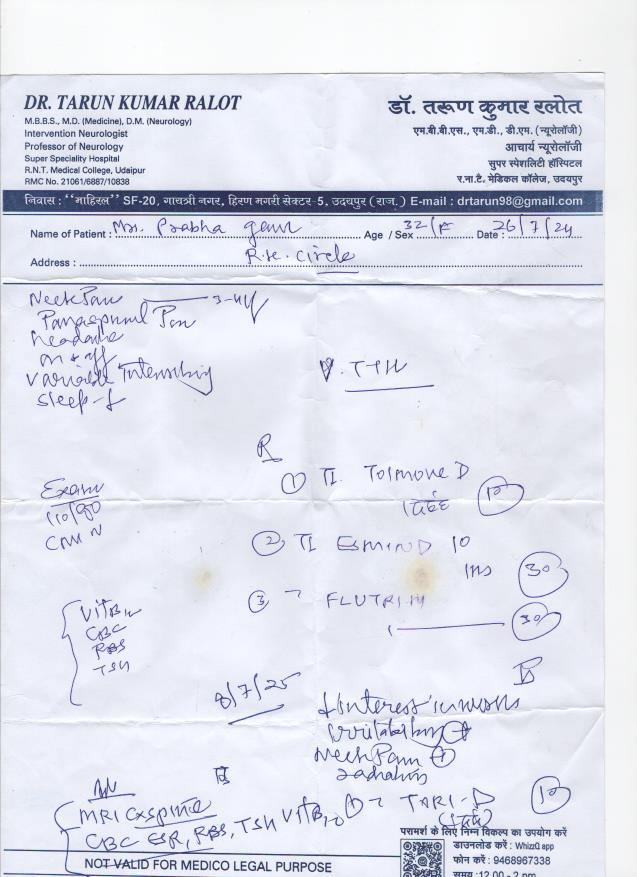 DR. TARUN KUMAR RALOT
M.B.B.S., M.D. (Medicine), D.M. (Neurology)
Intervention Neurologist
Professor of Neurology
Super Speciality Hospital
R.N.T. Medical College, Udaipur
RMC No. 21061/6887/10838
डॉ. तरूण कुमार रलोत
एम.बी.बी.एस., एम.डी., डी.एम. (न्यूरोलॉजी)
आचार्य न्यूरोलॉजी
सुपर स्पेशलिटी हॉस्पिटल
र.ना.टै. मेडिकल कॉलेज, उदयपुर
निवास : "माहिरल" SF-20, गायत्री नगर, हिरण मगरी सेक्टर-5, उदयपुर (राज.) E-mail : drtarun98@gmail.com
Name of Patient : Mrs. Prabha gaur Age / Sex 32/F Date : 26/7/24
Address : R.K. Circle
Neck Pain 3-4y
Paraspinal Pain
headache
on & off
variable Intensity
Sleep - ↓
TTH
R
① T. Tolmove D
10
Exam
110/80
② T. ESMIND 10
30
③ FLUTRIM
30
VitB12
CBC
RBS
TSH
8/7/25
↓ Interest in works
irritability +
Neck Pain +
radiations
MRI Cx spine
CBC ESR, RBS, TSH VitB12
① TARI-D 10
परामर्श के लिए निम्न विकल्प का उपयोग करें
डाउनलोड करें : WhizzQ app
फोन करें : 9468967338
समय : 12.00 - 2 pm
NOT VALID FOR MEDICO LEGAL PURPOSE